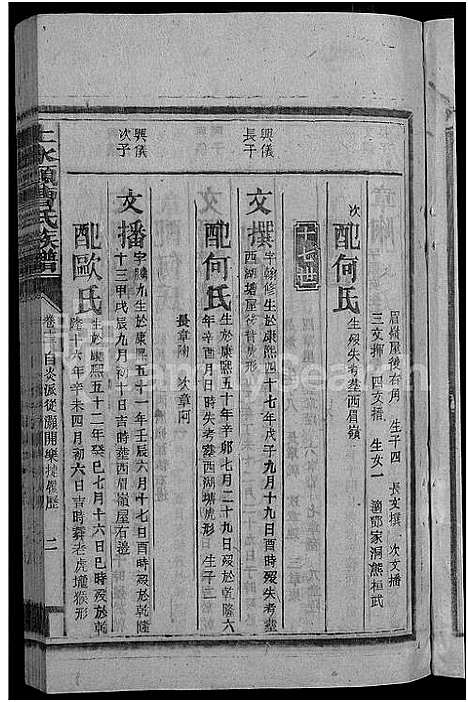 眉嶺屋後右角 生子四 長文撰 次文播
三文揮 四文播 生女一 適鄧家洞熊桓武
次 配何氏 生歿失考葬西眉嶺
十七世
興儀長子
文撰 字翰修生於康熙四十七年戊子九月十九日酉時歿失考葬
西湖塘屋後背虎形
配何氏 生於康熙五十年辛卯七月二十九日歿於乾隆六
年辛酉月日時失考葬西湖塘虎形 生子二
長章陶 次章阿
興儀次子
文播 字騰九生於康熙五十一年壬辰六月十七日酉時歿於乾隆
十三甲戌辰九月初十日吉時葬西眉嶺屋右邊
配歐氏 生於康熙五十二年癸巳七月十六日巳時歿於乾
隆十六年辛未四月初六日吉時葬老虎壠猴形
上水頭曹氏族譜
卷三 自炎派從灝開樂捷履歷
二
FamilySearch